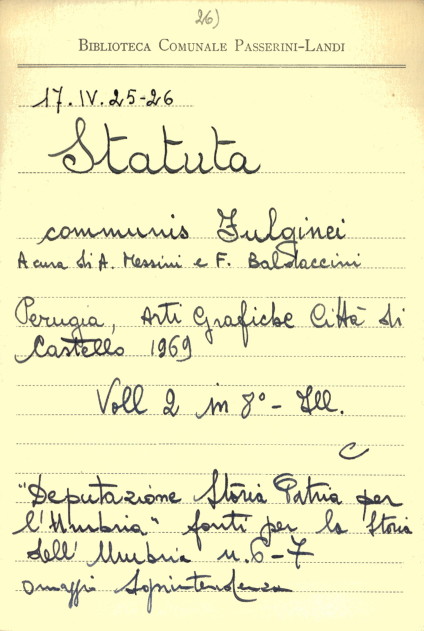 26)
BIBLIOTECA COMUNALE PASSERINI-LANDI
17.IV.25-26
Statuta
communis Fulginei
A cura di A. Messini e F. Baldaccini
Perugia, Arti Grafiche Città di
Castello 1969
Voll 2 in 8° - Ill.
C
"Deputazione Storia Patria per
l'Umbria" fonti per la Storia
dell'Umbria n. 6-7
omaggio Soprintendenza